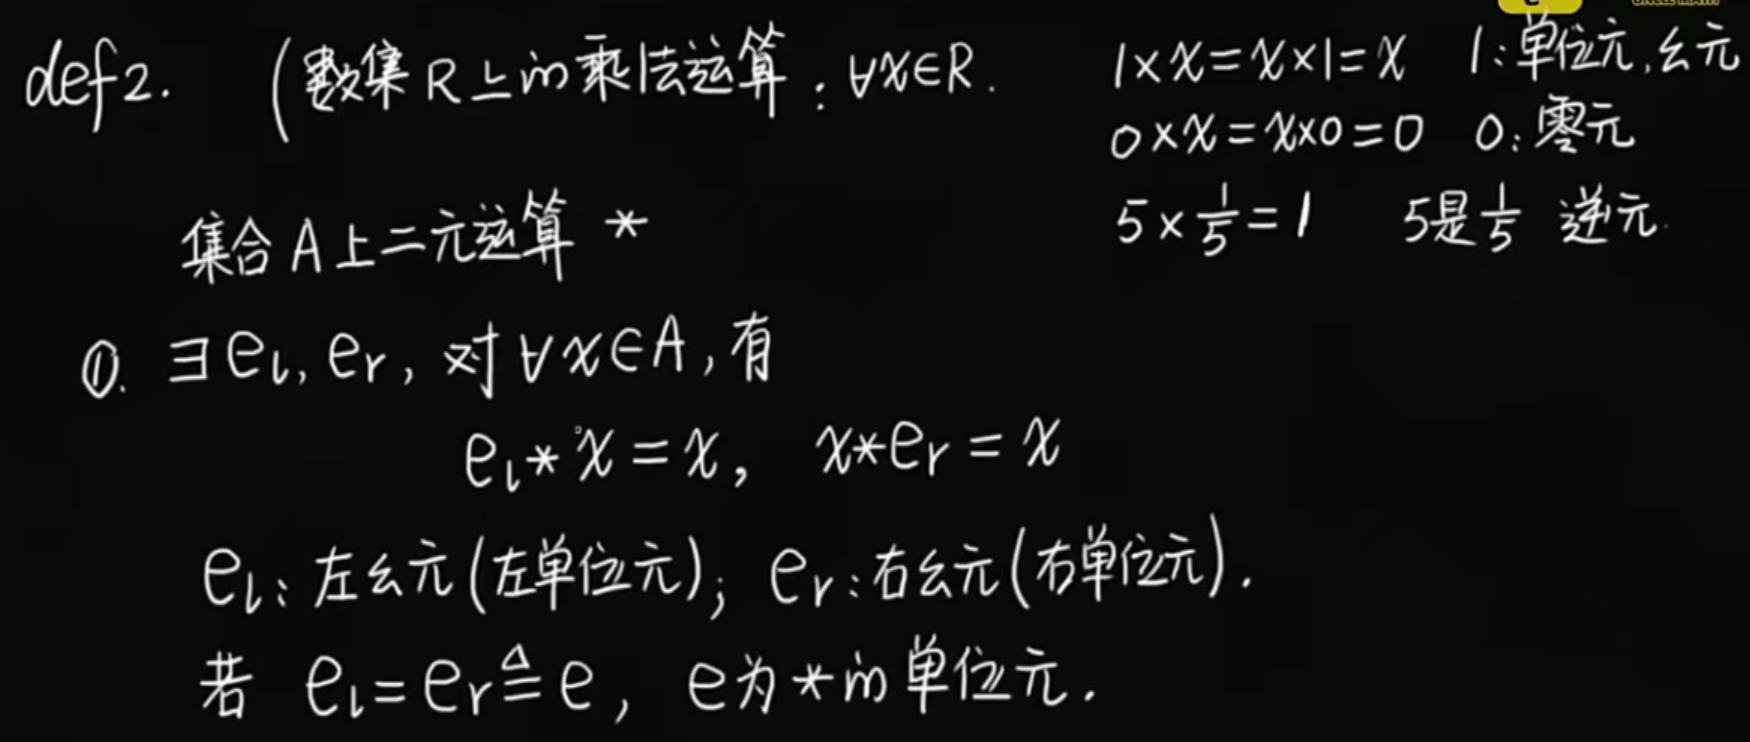 def2. (数集R上的乘法运算: ∀x∈R. 1×x=x×1=x 1:单位元,幺元
0×x=x×0=0 0:零元
5×1/5=1 5是1/5 逆元.
集合A上二元运算 *
①. ∃eₗ, eᵣ, 对∀x∈A, 有
eₗ*x=x, x*eᵣ=x
eₗ: 左幺元(左单位元); eᵣ: 右幺元(右单位元).
若 eₗ=eᵣ≜e, e为*的单位元.